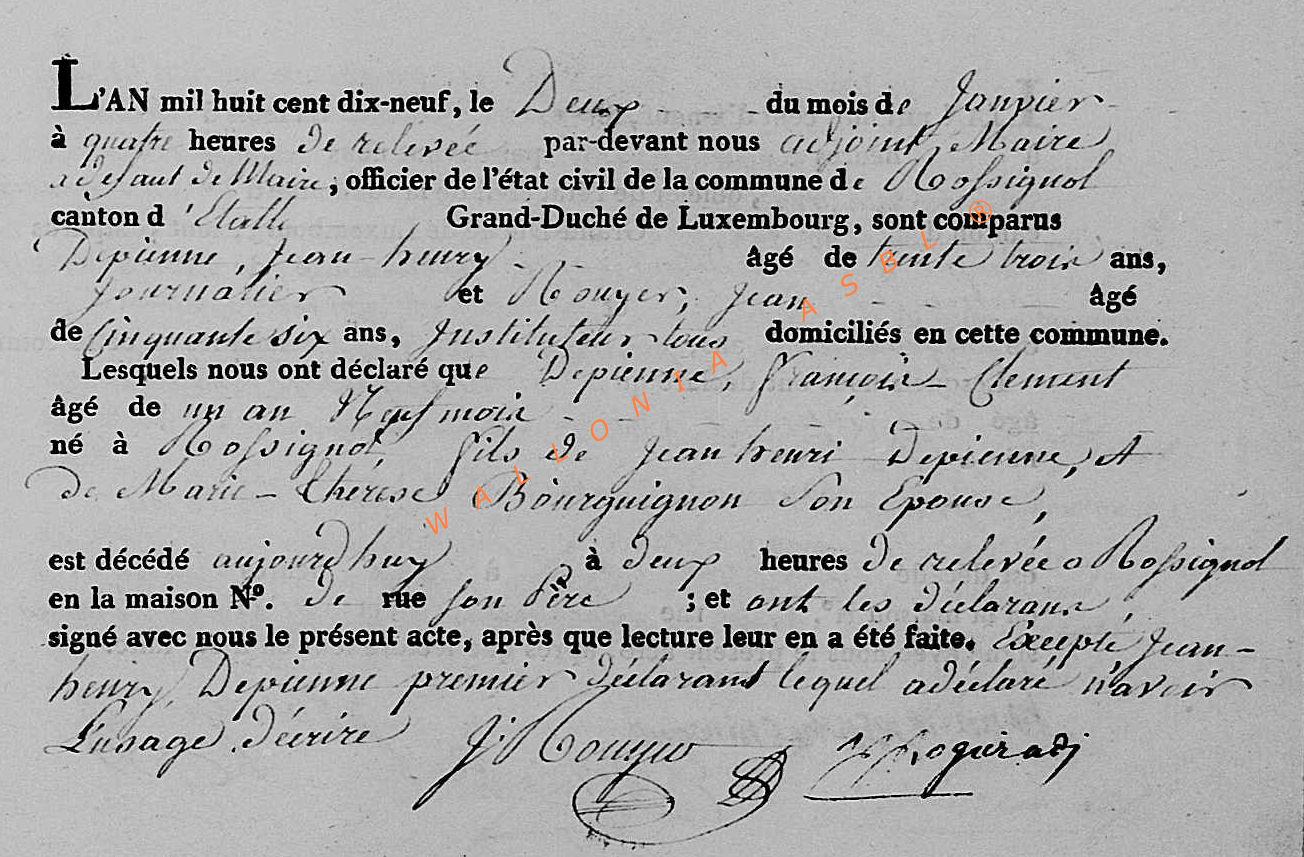 L'AN mil huit cent dix-neuf, le Deux du mois de Janvier
à quatre heures de relevée par-devant nous adjoint Maire
a defaut de Maire, officier de l'état civil de la commune de Rossignol
canton d'Etalle Grand-Duché de Luxembourg, sont comparus
Depienne, Jean-henry âgé de trente trois ans,
Journalier et Rouyer, Jean âgé
de Cinquante six ans, Instituteur tous domiciliés en cette commune.
Lesquels nous ont déclaré que Depienne, François-Clement
âgé de un an Neuf mois
né à Rossignol, fils de Jean henri Depienne, et
de Marie-Thérèse Bourguignon Son Epouse,
est décédé aujourd'huy à deux heures de relevée a Rossignol
en la maison N°. de rue son Père ; et ont les déclarans
signé avec nous le présent acte, après que lecture leur en a été faite. Excepté Jean-
henry Depienne premier déclarant lequel a déclaré n'avoir
L'usage d'écrire J. Rouyer
WALLONIA ASBL ®